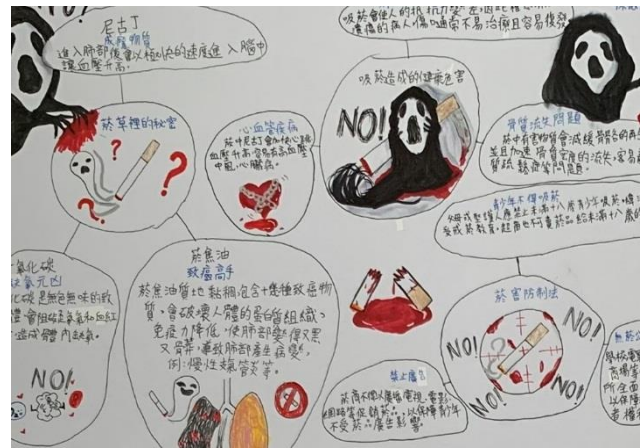 尼古丁
成癮物質
進入肺部後會以極快的速度進入腦中
讓血壓升高。
吸菸會使人的抵抗力變
潰瘍的病人傷口通常不易治療且容易復發
菸草裡的秘密
心血管疾病
菸中尼古丁會加快心跳
血壓升高容易有高血壓
中風心臟病。
吸菸造成的健康危害
NO!
骨質流失問題
菸中有害物質會減緩骨骼的再
並且加速骨質密度的流失容易
質疏鬆症等問題。
青少年不得吸菸
氧化碳
缺氧元凶
化碳是無色無味的致
造成體內缺氧。
NO!
菸焦油
致癌高手
菸焦油質地黏稠包含十幾種致癌物
質。會破壞人體的蛋白質組織。
免疫力降低，使肺部變得又黑
又骨髒，導致肺部產生病變。
例:慢性支氣管炎等。
菸害防制法
NO!
NO!
NO!
NO!
禁止廣告
菸商不得以廣播、電視、電影
網路等促銷菸品，以保障青少年
不受菸品廣告影響。
所全面
以保障